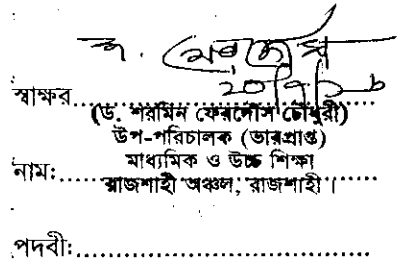 ২০/৭/১৮
স্বাক্ষর..............................
(ড. শরমিন ফেরদৌস চৌধুরী)
উপ-পরিচালক (ভারপ্রাপ্ত)
মাধ্যমিক ও উচ্চ শিক্ষা
নাম:..............................
রাজশাহী অঞ্চল, রাজশাহী।
পদবী:..............................